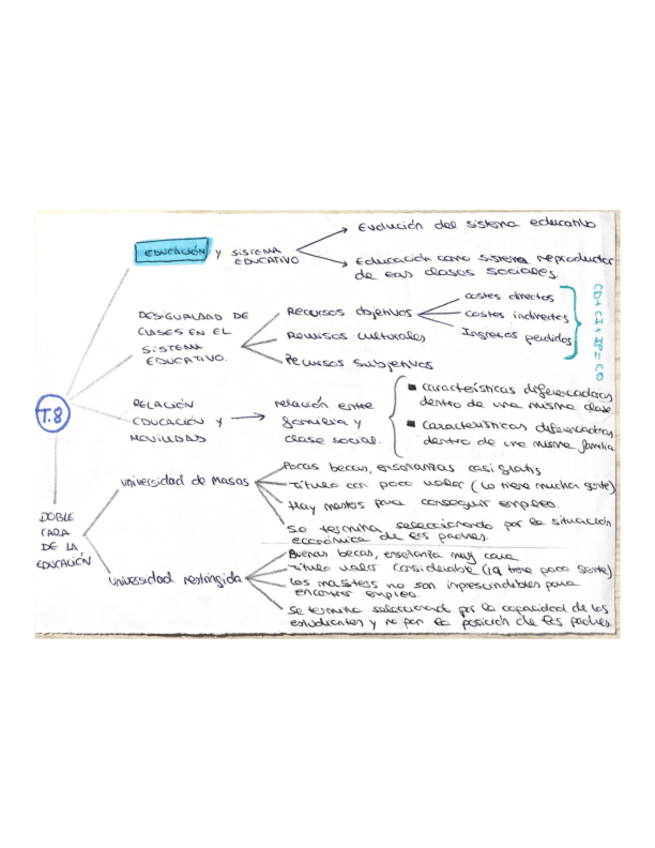 Evolución del sistema educativo
EDUCACIÓN y SISTEMA
EDUCATIVO
Educación como sistema reproductor
de las clases sociales.
DESIGUALDAD DE
CLASES EN EL
SISTEMA
EDUCATIVO.
Recursos objetivos
costes directos
costes indirectos
Ingresos perdidos
CD + CI + IP = CO
Recursos culturales
Recursos subjetivos
T.8
RELACIÓN
EDUCACIÓN y
MOVILIDAD
relación entre
familia y
clase social.
características diferenciadoras
dentro de una misma clase
características diferenciadoras
dentro de una misma familia
DOBLE
CARA
DE LA
EDUCACIÓN
universidad de masas
Pocas becas, enseñanzas casi gratis
Titulo con poco valor (lo tiene mucha gente)
Hay masters para conseguir empleo.
Se termina seleccionando por la situación
económica de los padres.
universidad restringida
Buenas becas, enseñanza muy cara
Titulo valor considerable (lq tiene poca gente)
Los masters no son inprescindibles para
encontrar empleo.
Se termina seleccionando por la capacidad de los
estudiantes y no por la posición de los padres.